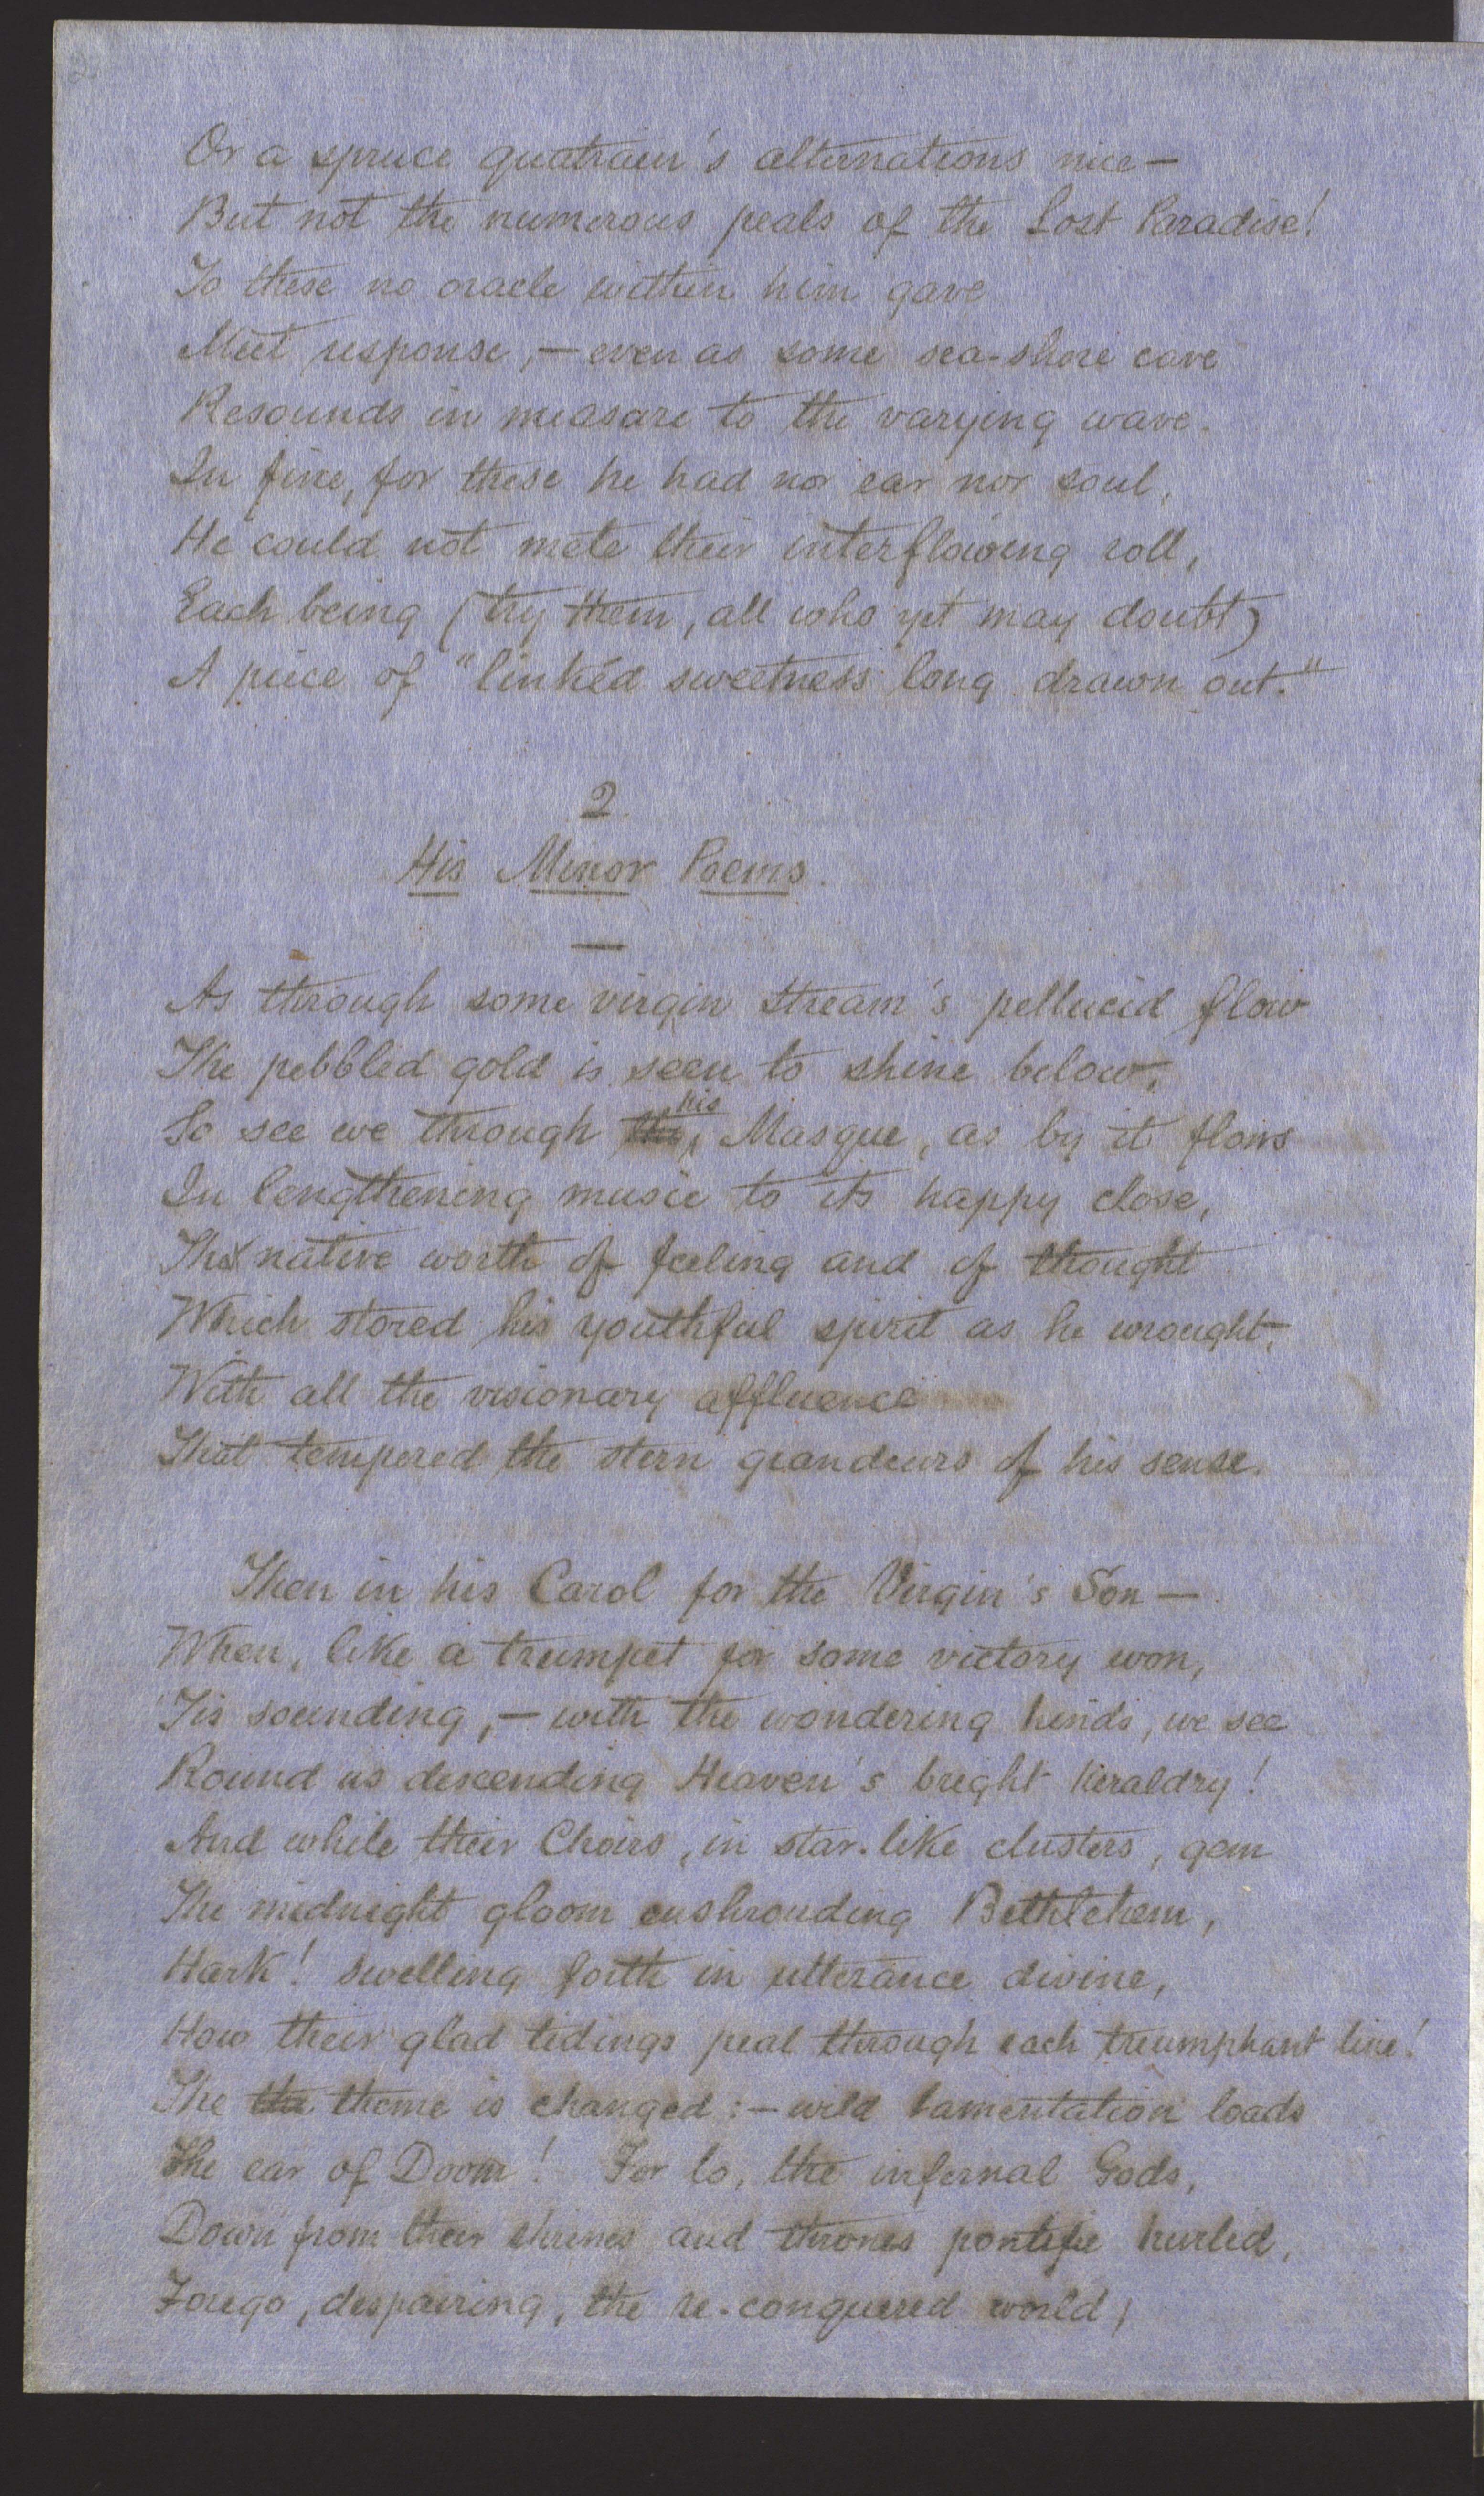 2
Or a spruce quatrain's alternations nice—
But not the numerous peals of the Lost Paradise!
To these no oracle within him gave
Meet response,—even as some sea-shore cave
Resounds in measure to the varying wave.
In fine, for these he had nor ear nor soul,
He could not mete their interflowing roll,
Each being (try them, all who yet may doubt)
A piece of "linkéd sweetness long drawn out."
2
His Minor Poems.
—
As through some virgin stream's pellucid flow
The pebbled gold is seen to shine below,
So see we through the his Masque, as by it flows
In lengthening music to its happy close,
The native worth of feeling and of thought
Which stored his youthful spirit as he wrought,
With all the visionary affluence
That tempered the stern grandeurs of his sense.
Then in his Carol for the Virgin's Son—
When, like a trumpet for some victory won,
'Tis sounding,—with the wondering hinds, we see
Round us descending Heaven's bright heraldry!
And while their Choirs, in star-like clusters, gem
The midnight gloom enshrouding Bethlehem,
Hark! swelling forth in utterance divine,
How their glad tidings peal through each triumphant line!
The the theme is changed:—wild lamentation loads
The ear of Doom! For lo, the infernal Gods,
Down from their shrines and thrones pontific hurled,
Forego, despairing, the re-conquered world;